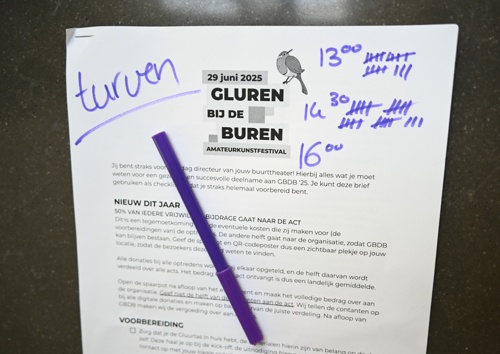 turven
13⁰⁰
14³⁰
16⁰⁰
29 juni 2025
GLUREN
BIJ DE
BUREN
AMATEURKUNSTFESTIVAL
Jij bent straks voor dag directeur van jouw buurttheater! Hierbij alles wat je moet
weten voor een succesvolle deelname aan GBDB '25. Je kunt deze brief
gebruiken als check dat je straks helemaal voorbereid bent.
NIEUW DIT JAAR
50% VAN IEDERE VRIJWIL BIJDRAGE GAAT NAAR DE ACT
Dit is een tegemoetkoming de eventuele kosten die zij maken voor (de
voorbereidingen van) de op De andere helft gaat naar de organisatie, zodat GBDB
kan blijven bestaan. Geef de en QR-codeposter dus een zichtbaar plekje op jouw
locatie, zodat de bezoekers deze weten te vinden.
Alle donaties bij alle optredens elkaar opgeteld, en de helft daarvan wordt
verdeeld over alle acts. Het bedrag ontvangt is dus een landelijk gemiddelde.
Open de spaarpot na afloop van het en maak het volledige bedrag over aan
de organisatie. Geef niet de helft van de aan de act. Wij tellen de contanten op
bij alle digitale donaties en maken op van de juiste verdeling. Na afloop van
GBDB maken wij de vergoeding over aan
VOORBEREIDING
Zorg dat je de Gluurtas in huis hebt, de materialen hierin zijn van belang op de